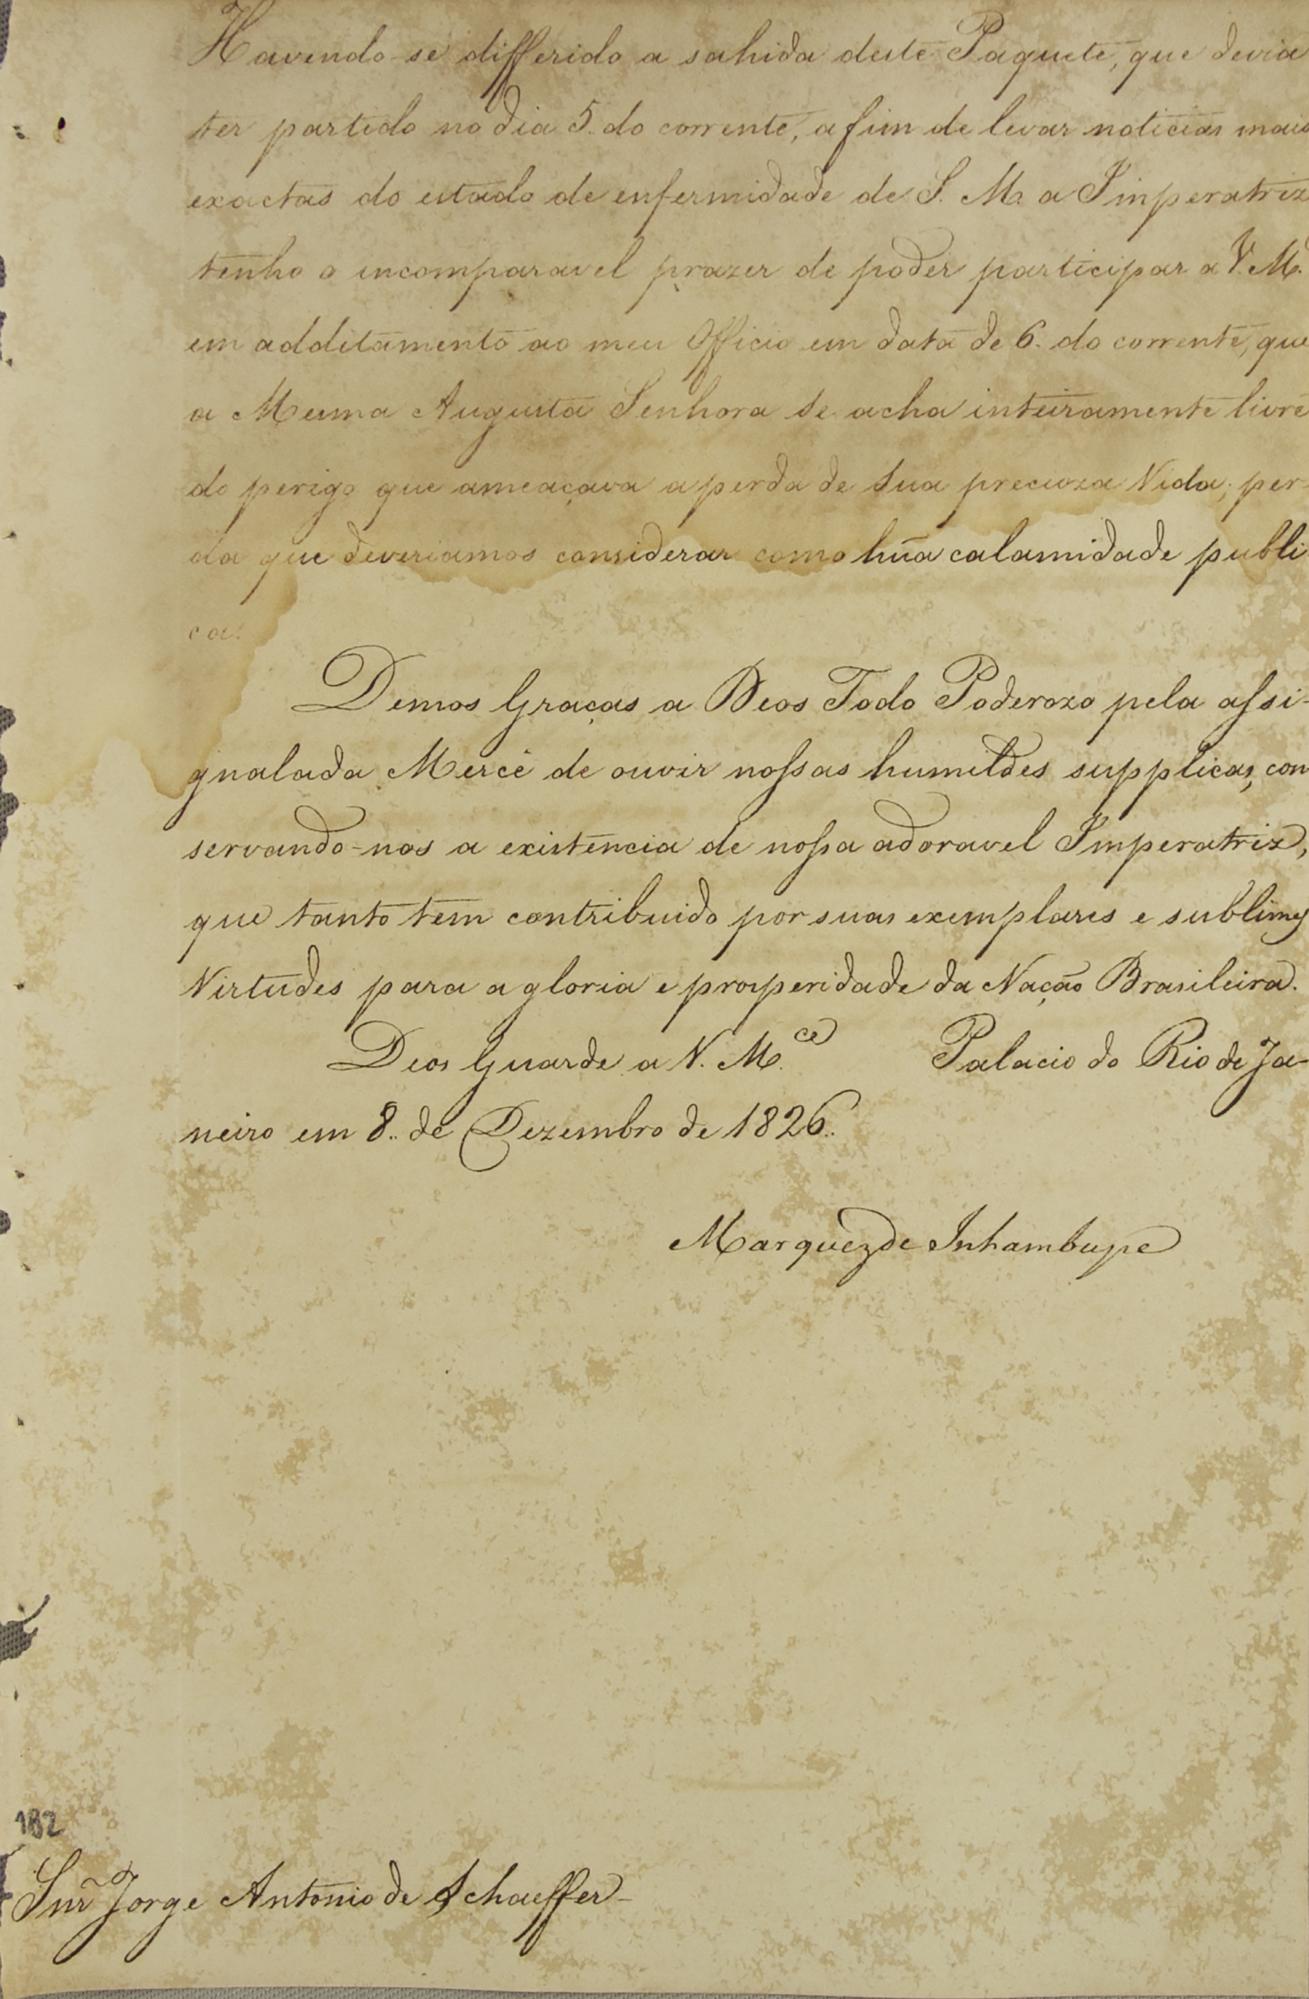 Havendo-se differido a sahida deste Paquete, que devia
ter partido no dia 5. do corrente, a fim de levar noticias mais
exactas do estado de enfermidade de S. M. a Imperatriz
tenho o incomparavel prazer de poder participar a V. M.ce
em additamento ao meu Officio em data de 6. do corrente, que
a Mesma Augusta Senhora se acha inteiramente livre
do perigo que ameaçava a perda de Sua precioza Vida; per-
da que deveriamos considerar como hũa calamidade publi
ca.
Demos Graças a Deos Todo Poderozo pela assi-
gnalada Mercê de ouvir nossas humildes supplicas, con
servando-nos a existencia de nossa adoravel Imperatriz,
que tanto tem contribuido por suas exemplares e sublimes
Virtudes para a gloria e prosperidade da Nação Brasileira.
Deos Guarde a V. M.ce Palacio do Rio de Ja-
neiro em 8. de Dezembro de 1826.
Marquez de Inhambupe
182
Snr̃ Jorge Antonio de Schaeffer-